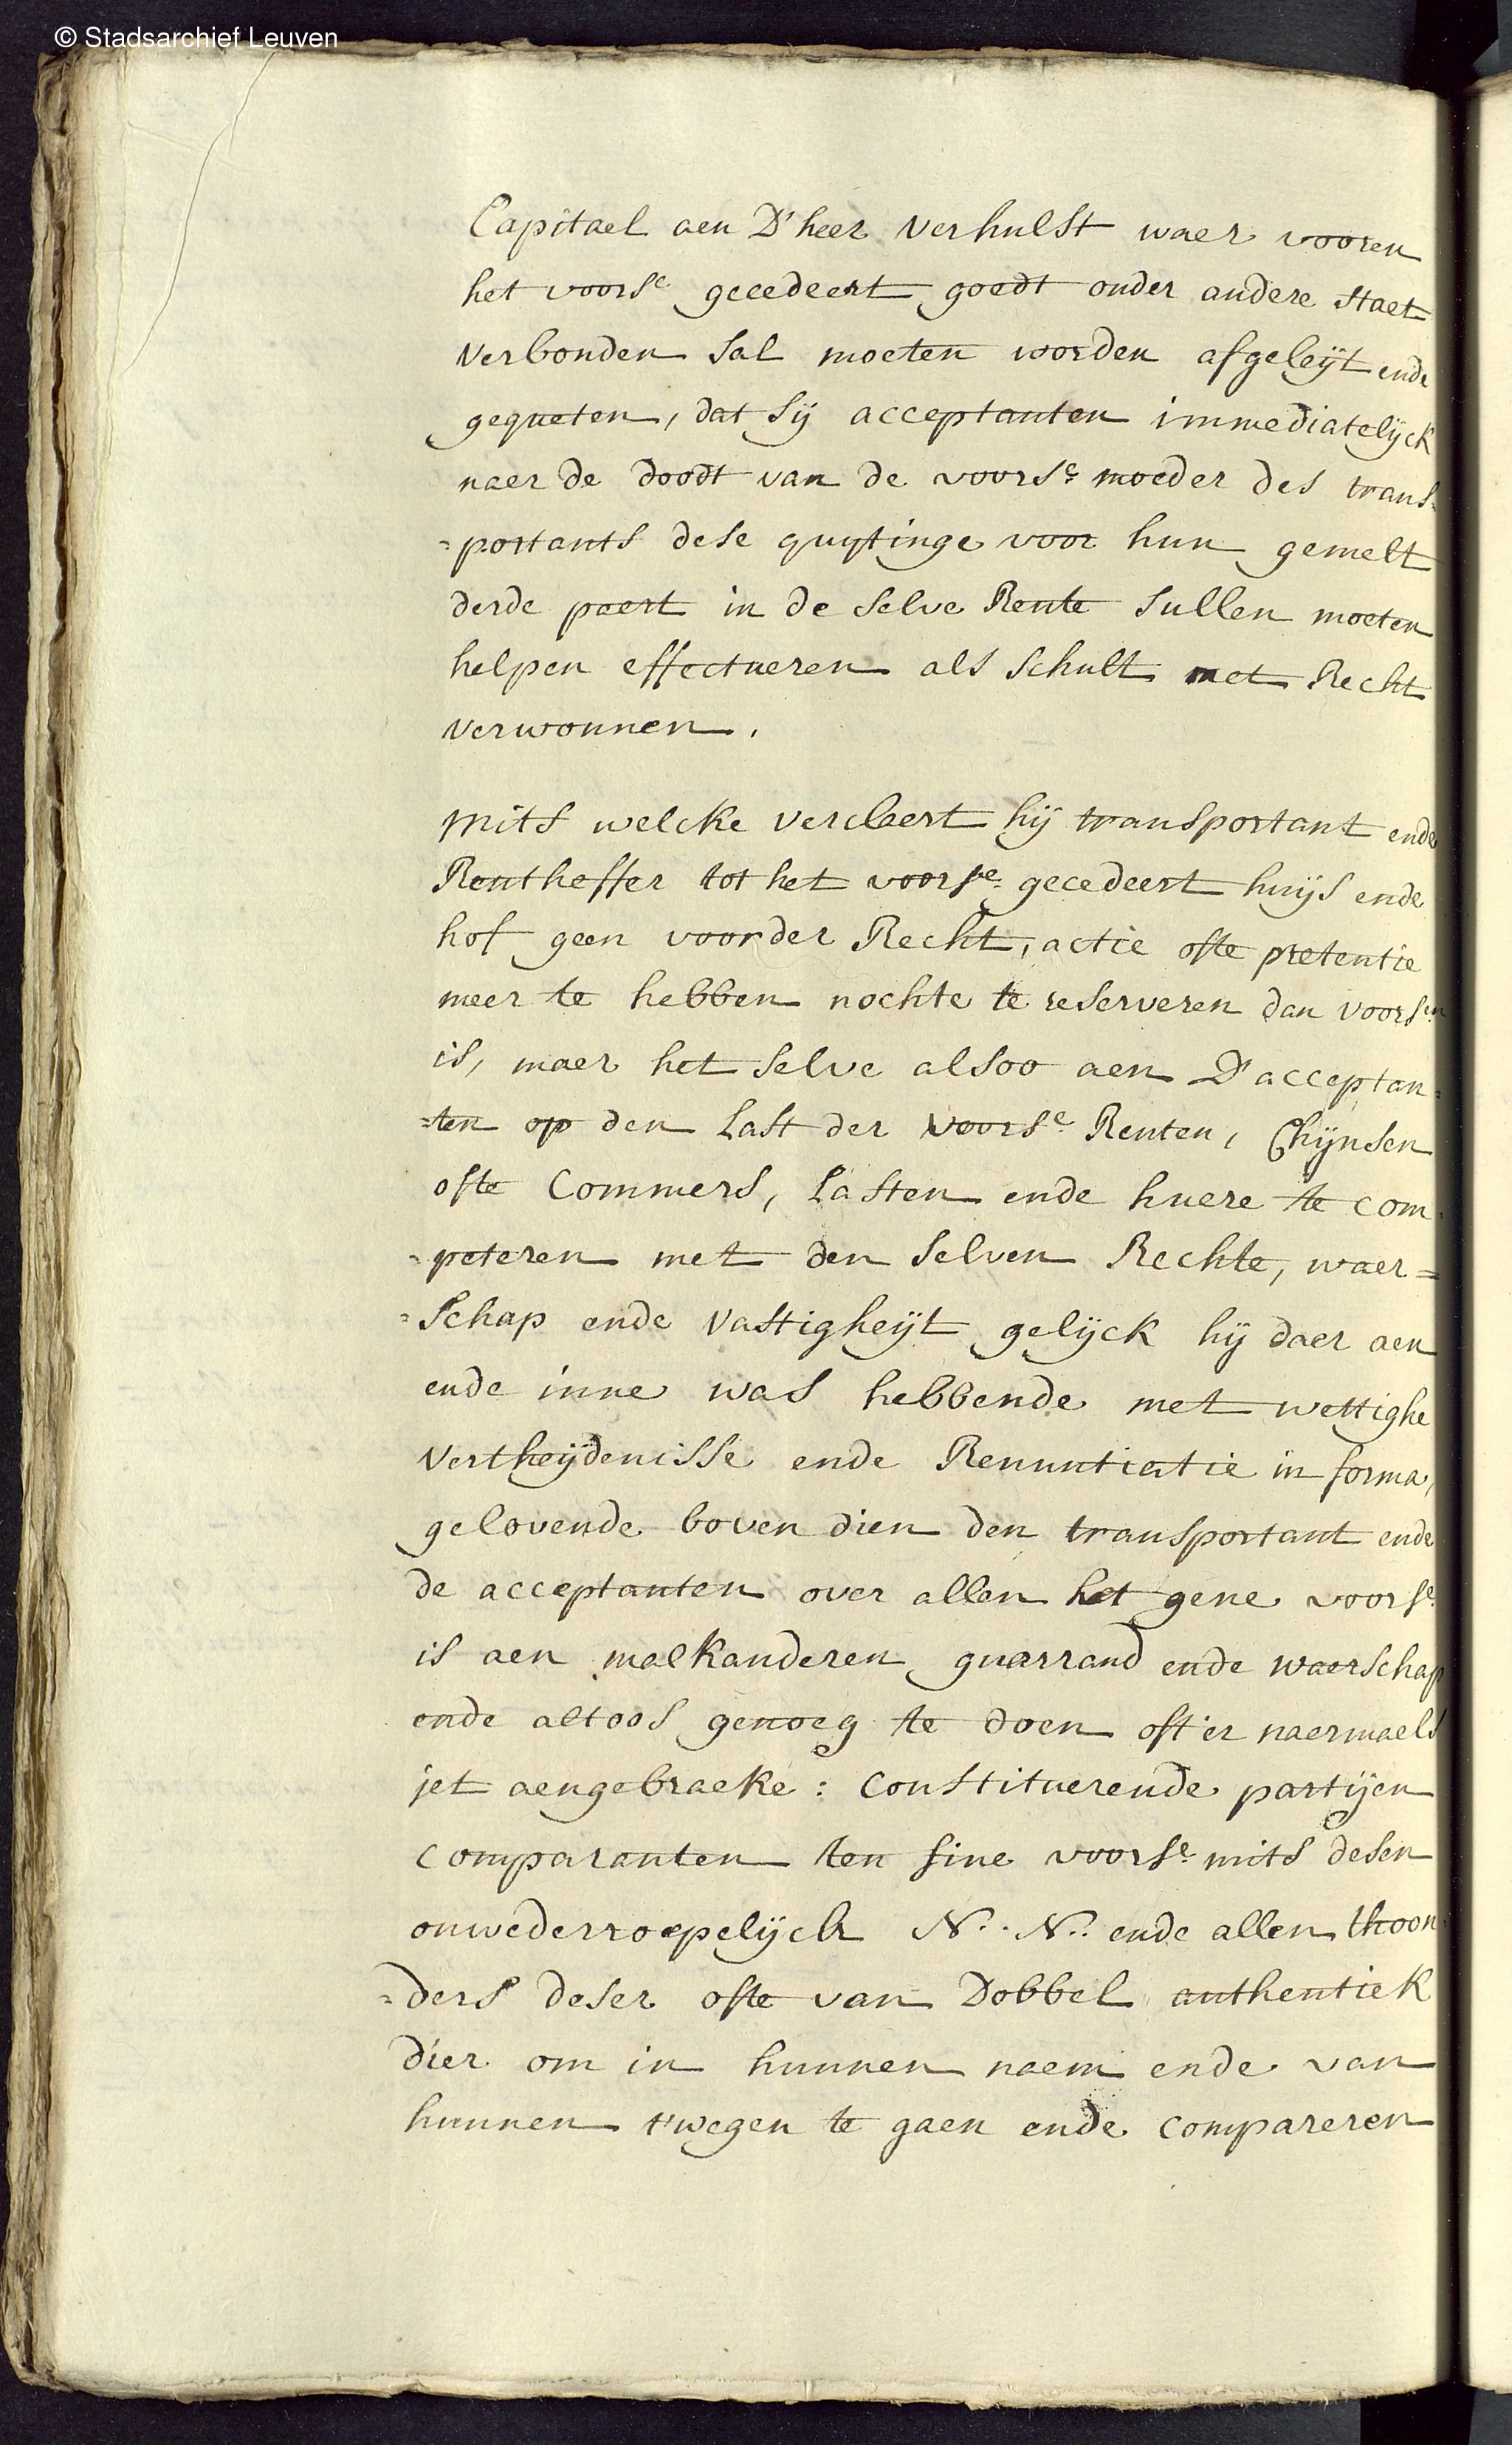 © Stadsarchief Leuven
Capitael aen D'heer verhulst waer vooren
het voorsc gecedeert goedt onder andere staet
verbonden sal moeten worden afgeleijt ende
gequeten, dat sij acceptanten immediatelijck
naer de doodt van de voorse moeder des trans=
=portants dese quytinge voor hun gemelt
derde paert in de selve Rente sullen moeten
helpen effectueren als schult met Recht
verwonnen.
Mits welcke verclaert hij transportant ende
Rentheffer tot het voorse gecedeert huijs ende
hof geen voorder Recht, actie ofte pretentie
meer te hebben nochte te reserveren dan voorsen
is, maer het selve alsoo aen D'acceptan=
=ten op den Last der voorse Renten, Chijnsen
ofte Commers, Lasten ende huere te com=
=peteren met den selven Rechte, waer=
=schap ende vastigheijt gelijck hij daer aen
ende inne was hebbende met wettighe
vertheijdenisse ende Renuntiatie in forma,
gelovende boven dien den transportant ende
de acceptanten over allen het gene voorse
is aen malkanderen guarrand ende waerschap
ende altoos genoeg te doen oft'er naermaels
jet aengebraeke: Constituerende partijen
comparanten ten fine voorse mits desen
onwederroepelijck N.. N.. ende allen thoon=
=ders deser ofte van Dobbel authentiek
dier om in hunnen naem ende van
hunnen t'wegen te gaen ende compareren